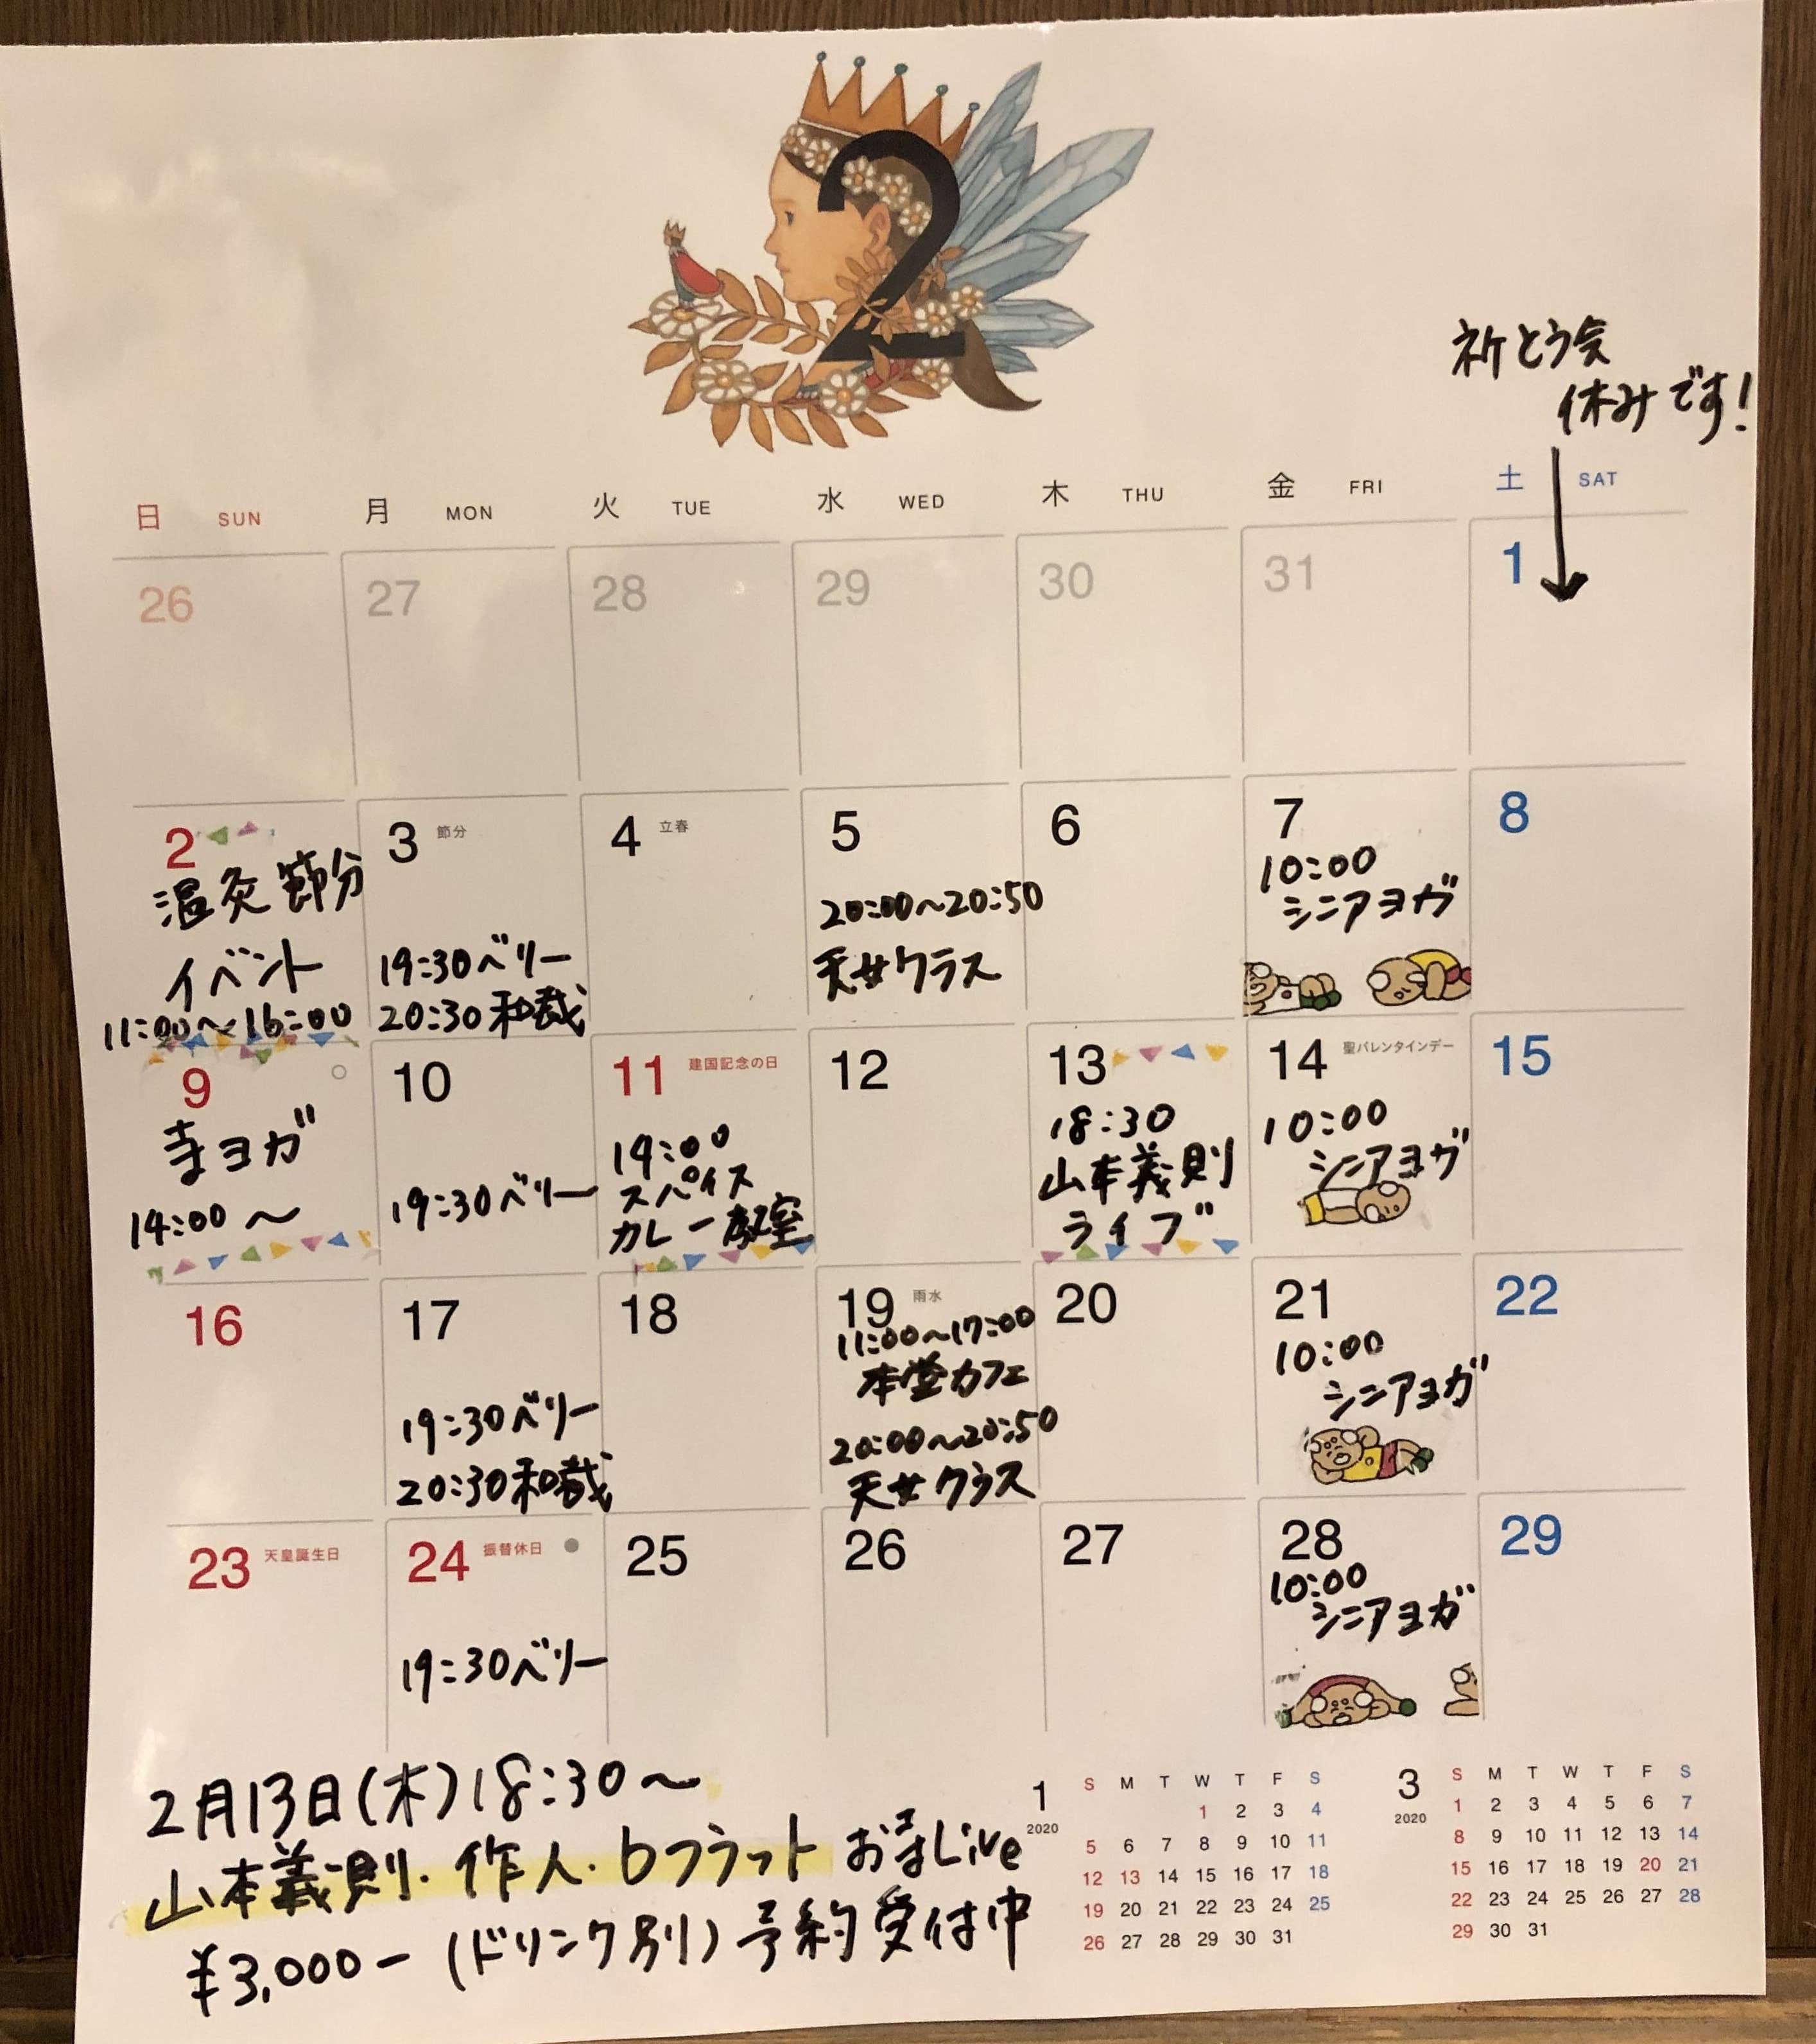 2
祈とう会
休みです!
日 SUN 月 MON 火 TUE 水 WED 木 THU 金 FRI 土 SAT
26 27 28 29 30 31 1
2
温灸節分
イベント
11:00〜16:00
3 節分
19:30ベリー
20:30和裁
4 立春
5
20:00〜20:50
天女クラス
6
7
10:00
シニアヨガ
8
9
寺ヨガ
14:00〜
10
19:30ベリー
11 建国記念の日
19:00
スパイス
カレー教室
12
13
18:30
山本義則
ライブ
14 聖バレンタインデー
10:00
シニアヨガ
15
16
17
19:30ベリー
20:30和裁
18
19 雨水
11:00〜17:00
本堂カフェ
20:00〜20:50
天女クラス
20
21
10:00
シニアヨガ
22
23 天皇誕生日
24 振替休日
19:30ベリー
25
26
27
28
10:00
シニアヨガ
29
2月13日(木)18:30〜
山本義則・作人・bフラット お寺Live
¥3,000ー(ドリンク別)予約受付中
1
2020
S M T W T F S
1 2 3 4
5 6 7 8 9 10 11
12 13 14 15 16 17 18
19 20 21 22 23 24 25
26 27 28 29 30 31
3
2020
S M T W T F S
1 2 3 4 5 6 7
8 9 10 11 12 13 14
15 16 17 18 19 20 21
22 23 24 25 26 27 28
29 30 31